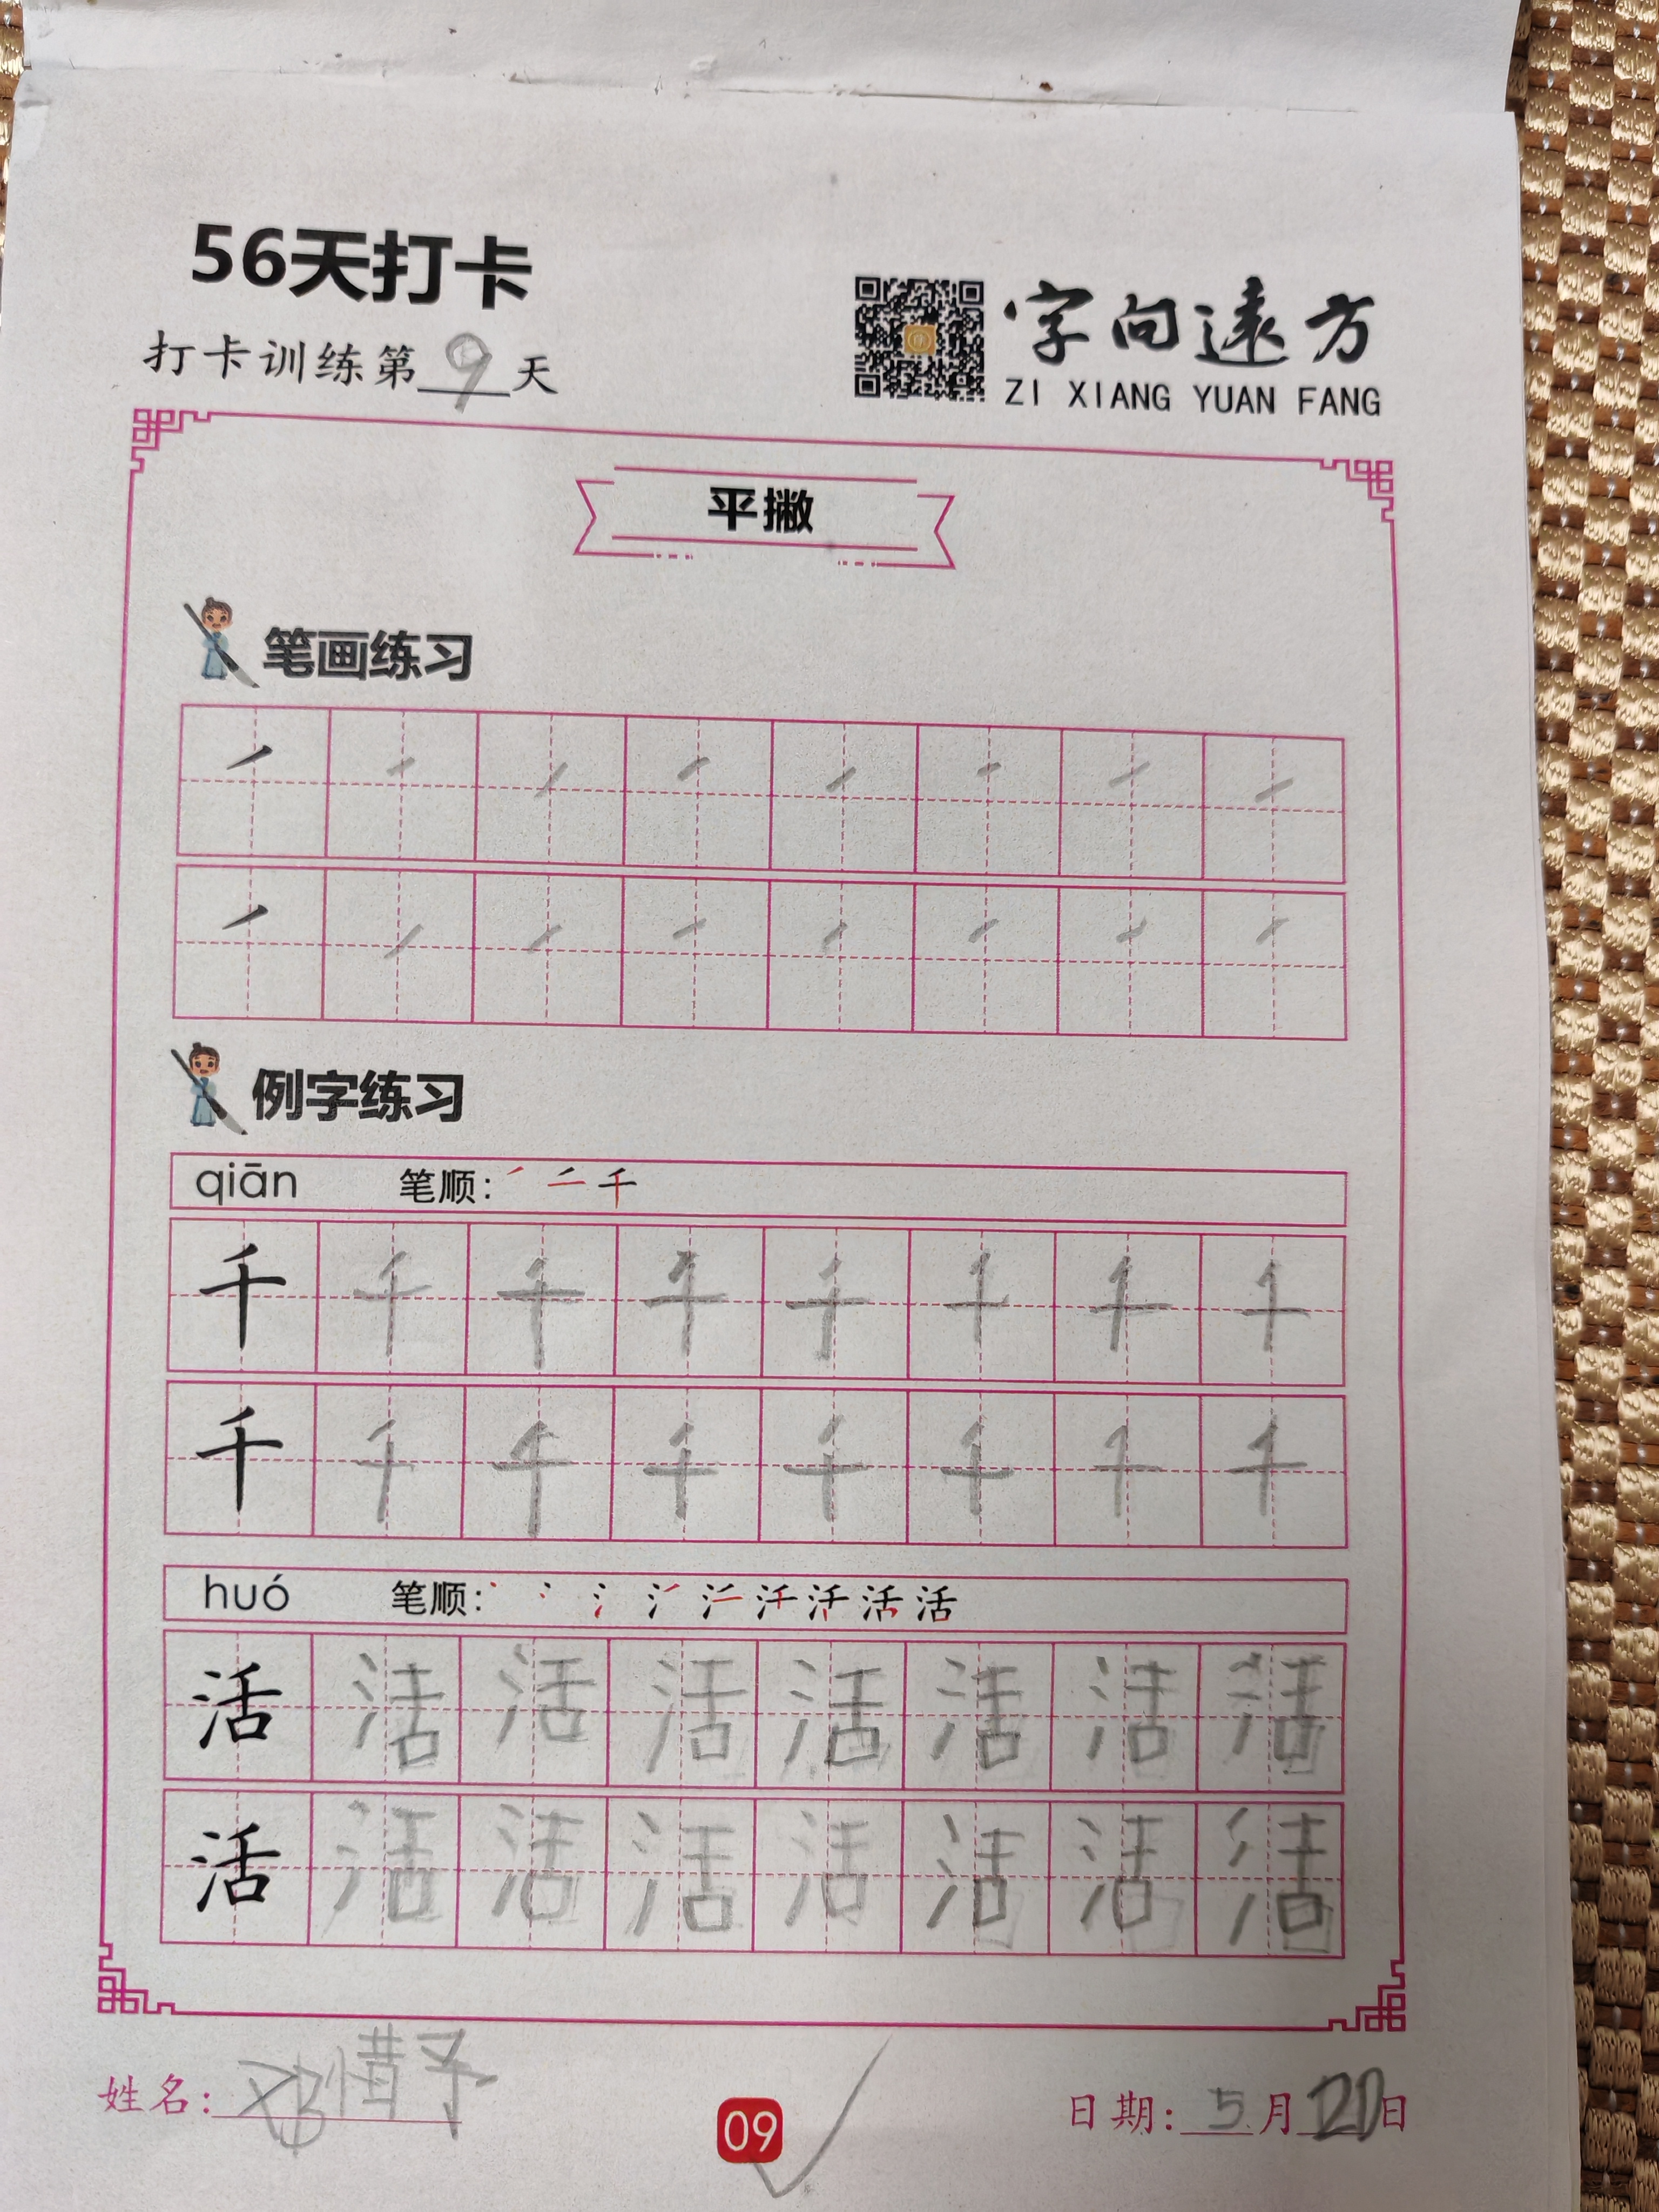 56天打卡
打卡训练第9天
字向远方
ZI XIANG YUAN FANG
平撇
笔画练习
例字练习
qiān 笔顺: 丿 二 千
千 千 千 千 千 千 千 千
千 千 千 千 千 千 千 千
huó 笔顺: 活
活 活 活 活 活 活 活 活
活 活 活 活 活 活 活 活
姓名: 邓惜予
09
日期: 5月20日